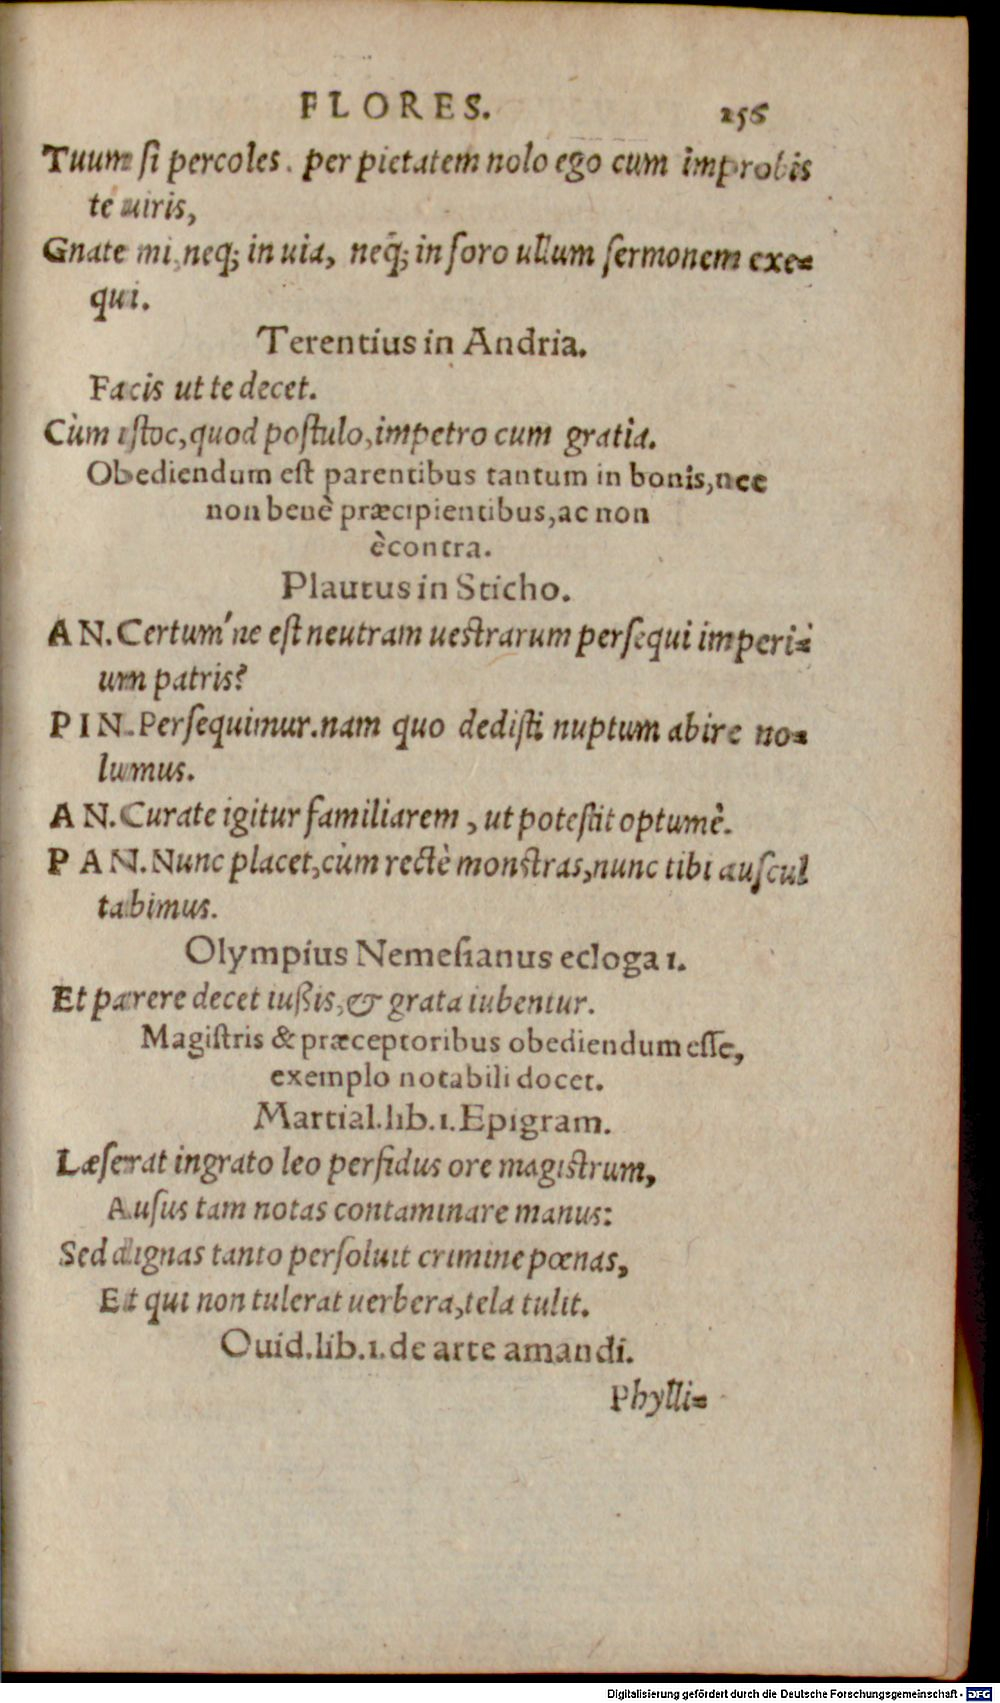 FLORES. 256
Tuum si percoles. per pietatem nolo ego cum improbis
te uiris,
Gnate mi, neq; in uia, neq̃; in foro ullum sermonem exe=
qui.
Terentius in Andria.
Facis ut te decet.
Cùm istoc, quod postulo, impetro cum gratia.
Obediendum est parentibus tantum in bonis, nec
non benè præcipientibus, ac non
ècontra.
Plautus in Sticho.
AN. Certum'ne est neutram uestrarum persequi imperi=
um patris?
PIN. Persequimur. nam quo dedisti nuptum abire no=
lumus.
AN. Curate igitur familiarem, ut potestit optumè.
PAN. Nunc placet, cùm rectè monstras, nunc tibi auscul
tabimus.
Olympius Nemesianus ecloga 1.
Et parere decet iußis, & grata iubentur.
Magistris & præceptoribus obediendum esse,
exemplo notabili docet.
Martial. lib. 1. Epigram.
Læserat ingrato leo perfidus ore magistrum,
Ausus tam notas contaminare manus:
Sed dignas tanto persoluit crimine pœnas,
Et qui non tulerat uerbera, tela tulit.
Ouid. lib. 1. de arte amandi.
Phylli=
Digitalisierung gefördert durch die Deutsche Forschungsgemeinschaft - DFG